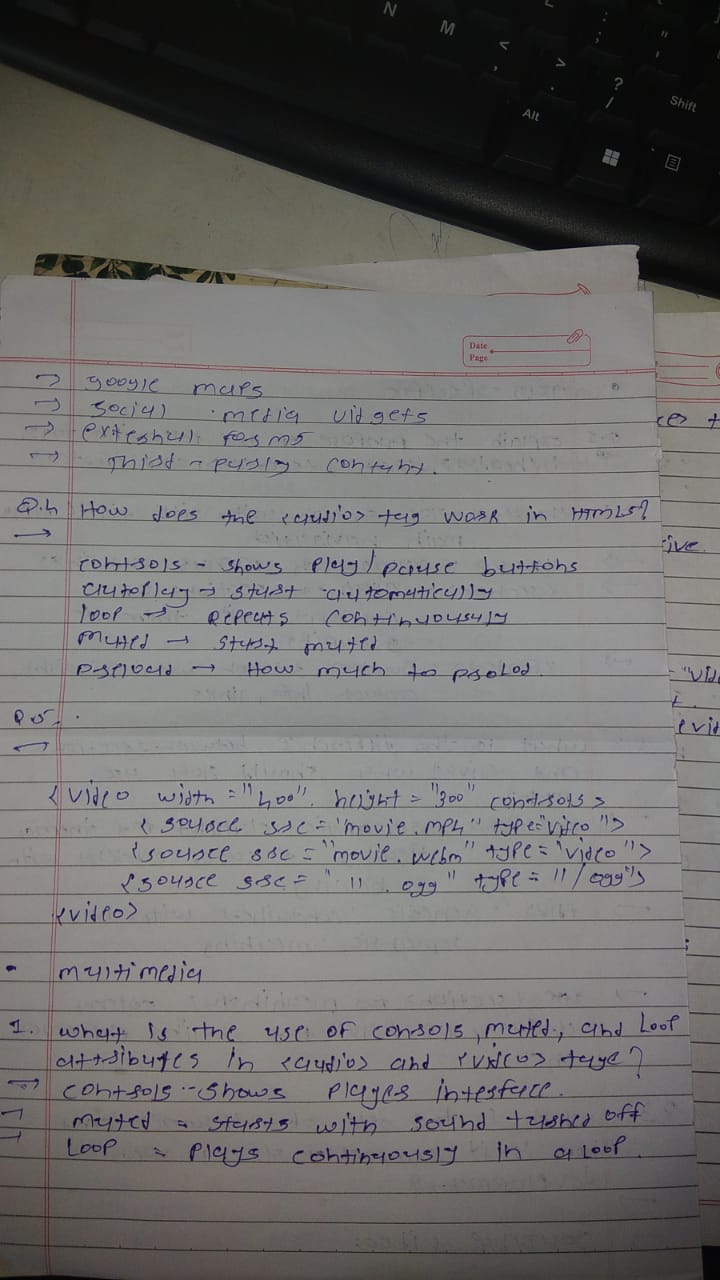 N
M
<
,
>
.
?
/
Alt
Shift
Date
Page
→ google maps
→ social media vidgets
→ exteshal forms
→ third - pusly contant.
Q.4 How does the <audio> tag work in HTML5?
→
controls - shows play/pause buttons
autoplay → start automatically
loop → Repeats continuousuly
muted → start muted
preload → How much to prolod.
Q5.
→
<video width="400". height="300" controls>
<source src='movie.mp4" type="video">
<source src="movie.webm" type="video">
<source src=" 11 .ogg" type = 11/ogg">
<video>
• multimedia
1. what is the use of consols, muted, and Loop
attributes in <audio> and <video> tage?
→ controls - shows player interface.
→ muted = starts with sound turned off
→ Loop = plays continuously in a loop.
ive.
"vid
evid